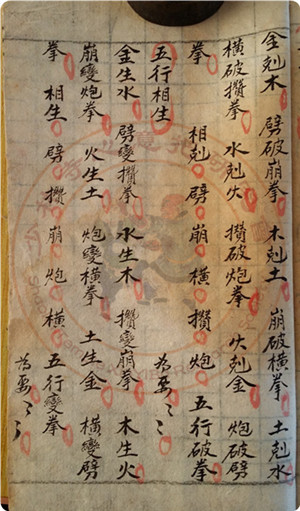 金剋木　劈破崩拳　木剋土　崩破橫拳　土剋水
橫破攢拳　水剋火　攢破炮拳　火剋金　炮破劈
拳　相剋　劈　崩　橫　攢　炮　五行破拳
為要〻〻
五行相生
金生水　劈變攢拳　水生木　攢變崩拳　木生火
崩變炮拳　火生土　炮變橫拳　土生金　橫變劈
拳　相生　劈　攢　崩　炮　橫　五行變拳
為要〻〻